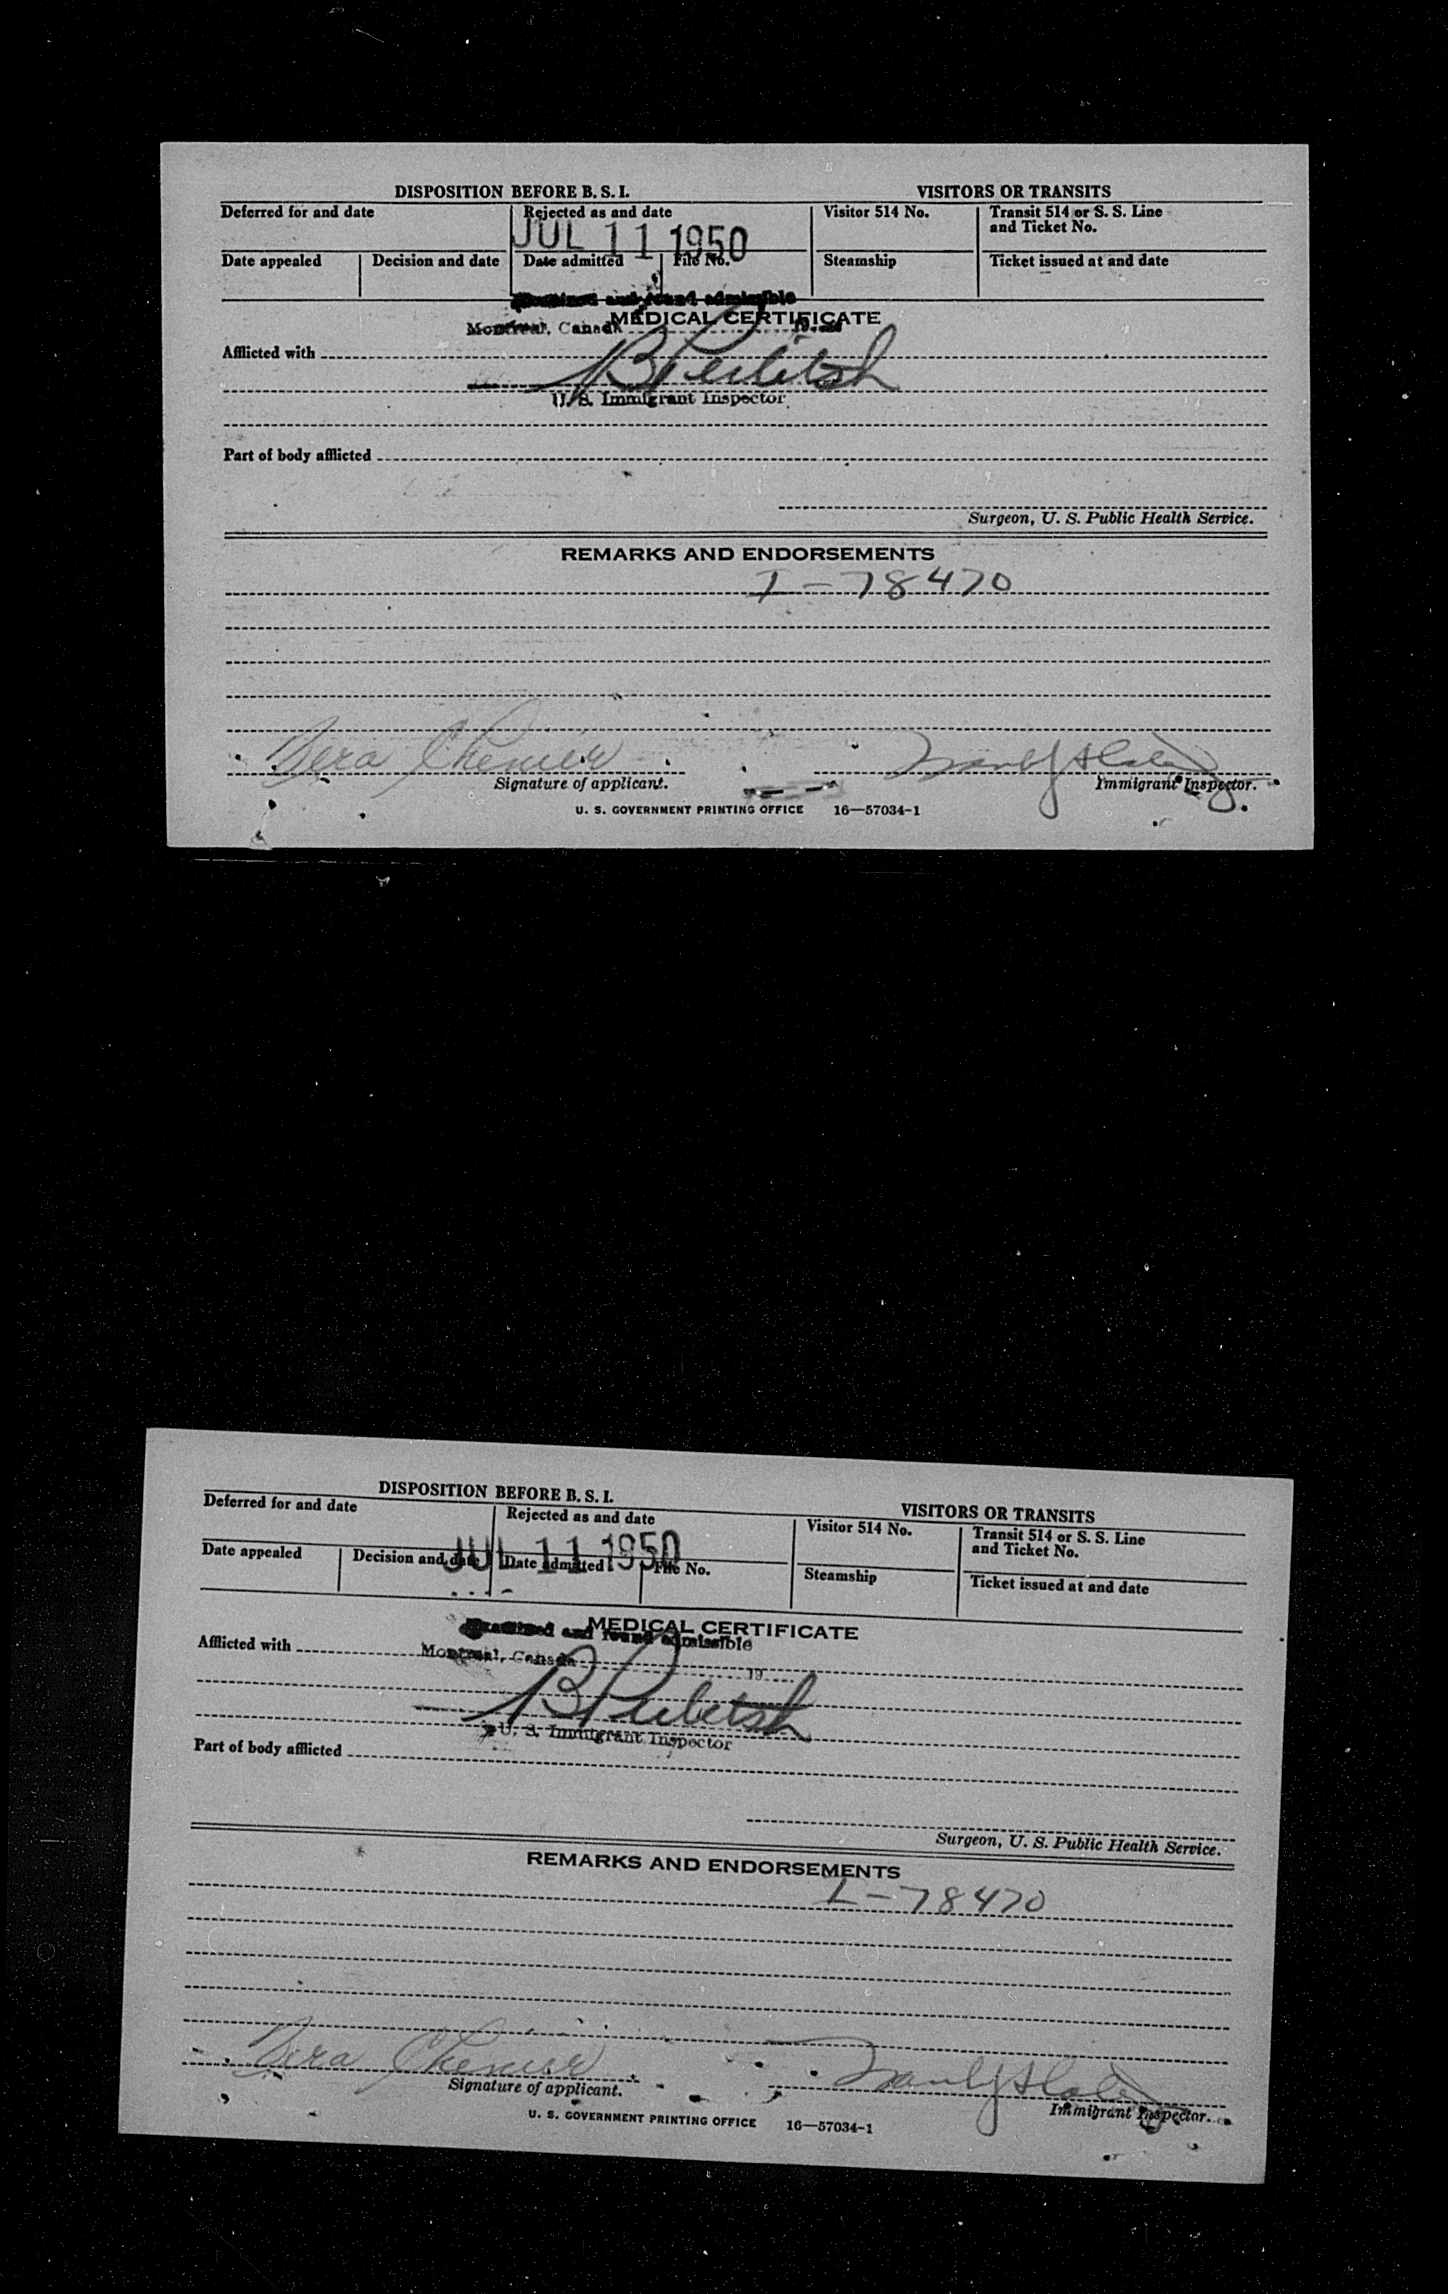 DISPOSITION BEFORE B. S. I.
VISITORS OR TRANSITS
Deferred for and date
Rejected as and date
Visitor 514 No.
Transit 514 or S. S. Line
and Ticket No.
JUL 11 1950
Date appealed
Decision and date
Date admitted
File No.
Steamship
Ticket issued at and date
Examined and found admissible
MEDICAL CERTIFICATE
Montreal, Canada 19
Afflicted with
U. S. Immigrant Inspector
Part of body afflicted
Surgeon, U. S. Public Health Service.
REMARKS AND ENDORSEMENTS
I-78470
Vera Chenier
Signature of applicant.
Immigrant Inspector.
U. S. GOVERNMENT PRINTING OFFICE 16—57034-1
DISPOSITION BEFORE B. S. I.
VISITORS OR TRANSITS
Deferred for and date
Rejected as and date
Visitor 514 No.
Transit 514 or S. S. Line
and Ticket No.
JUL 11 1950
Date appealed
Decision and date
Date admitted
File No.
Steamship
Ticket issued at and date
MEDICAL CERTIFICATE
Examined and found admissible
Afflicted with
Montreal, Canada 19
U. S. Immigrant Inspector
Part of body afflicted
Surgeon, U. S. Public Health Service.
REMARKS AND ENDORSEMENTS
I-78470
Vera Chenier
Signature of applicant.
Immigrant Inspector.
U. S. GOVERNMENT PRINTING OFFICE 16—57034-1